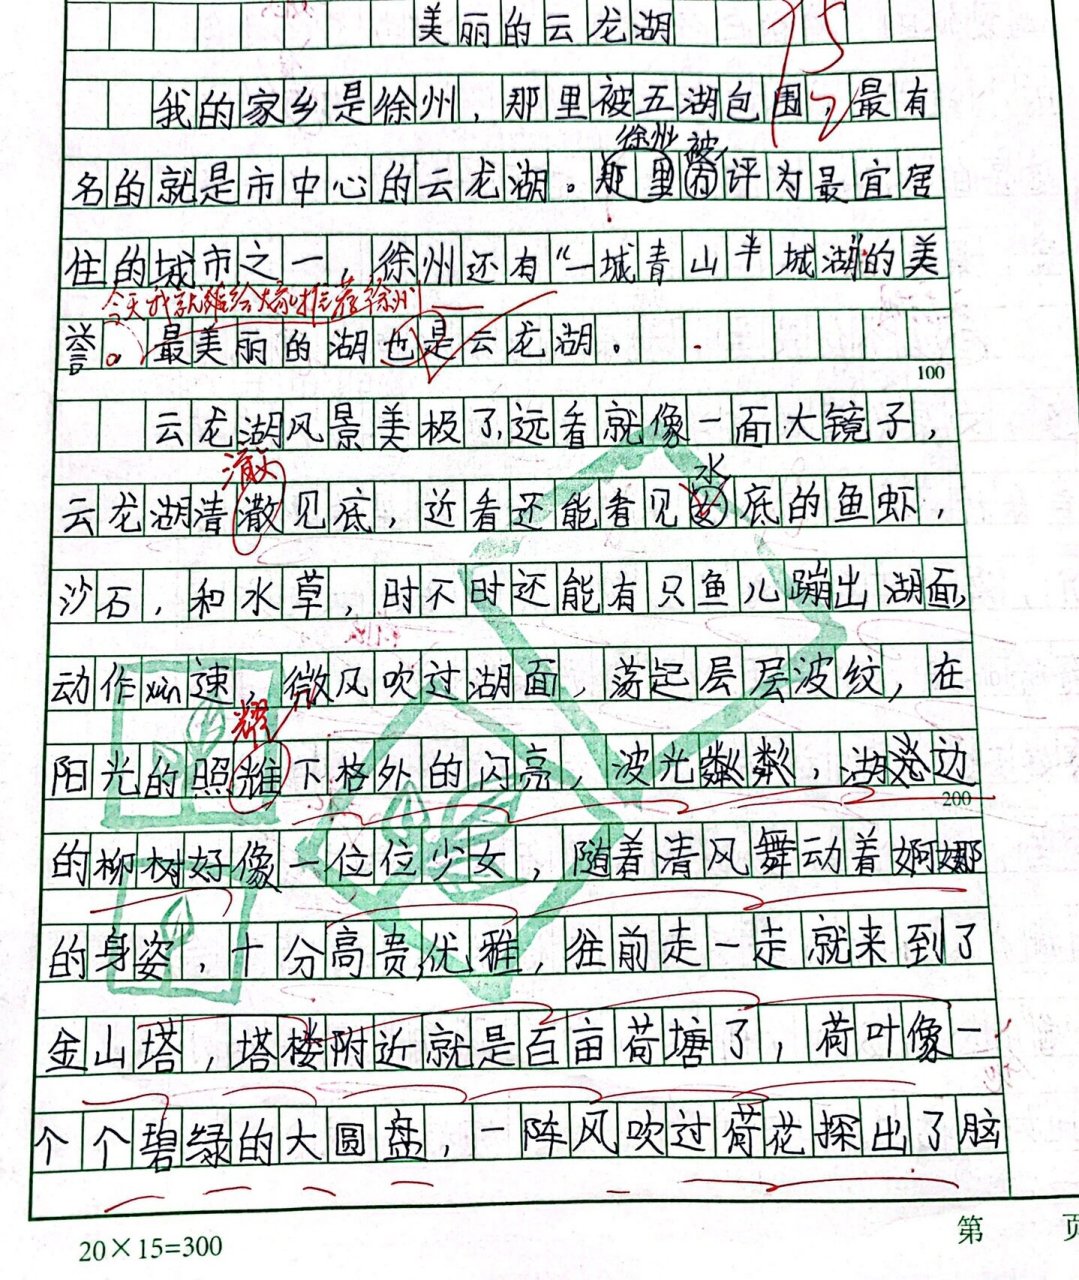 美丽的云龙湖
75
我的家乡是徐州，那里被五湖包围，最有
徐州 被
名的就是市中心的云龙湖。那里有评为最宜居
住的城市之一，徐州还有“一城青山半城湖”的美
今天我就给大家推荐徐州
誉。最美丽的湖也是云龙湖。
100
云龙湖风景美极了，远看就像一面大镜子，
澈 水
云龙湖清澈见底，近看还能看见底的鱼虾，
沙石，和水草，时不时还能有只鱼儿蹦出湖面，
动作xùn速，微风吹过湖面，荡起层层波纹，在
耀
阳光的照下格外的闪亮，波光粼粼，湖边
200
的柳树好像一位位少女，随着清风舞动着婀娜
的身姿，十分高贵优雅，往前走一走就来到了
金山塔，塔楼附近就是百亩荷塘了，荷叶像一
个个碧绿的大圆盘，一阵风吹过荷花探出了脑
20×15=300
第 页